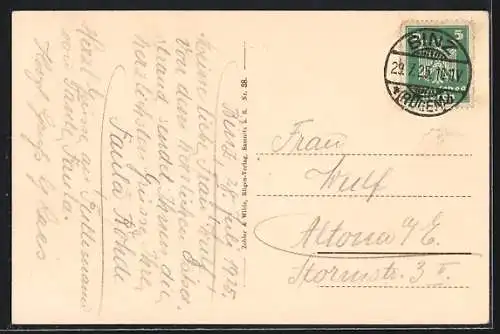 Binz, 28 Juli 1925.
Meine liebe Frau Wulf!
Von dem herrlichen Ostsee-
strand sendet Ihnen die
herzlichsten Grüsse, Ihre
Paula Rohde
Herzl. Grüsse
von Paula.
Zobler & Wilde, Rügen-Verlag, Sassnitz i. R. Nr. 38.
5
BINZ
29.7.25
(RÜGEN)
Frau
Wulf
Altona a/E.
Stormstr. 3 II.